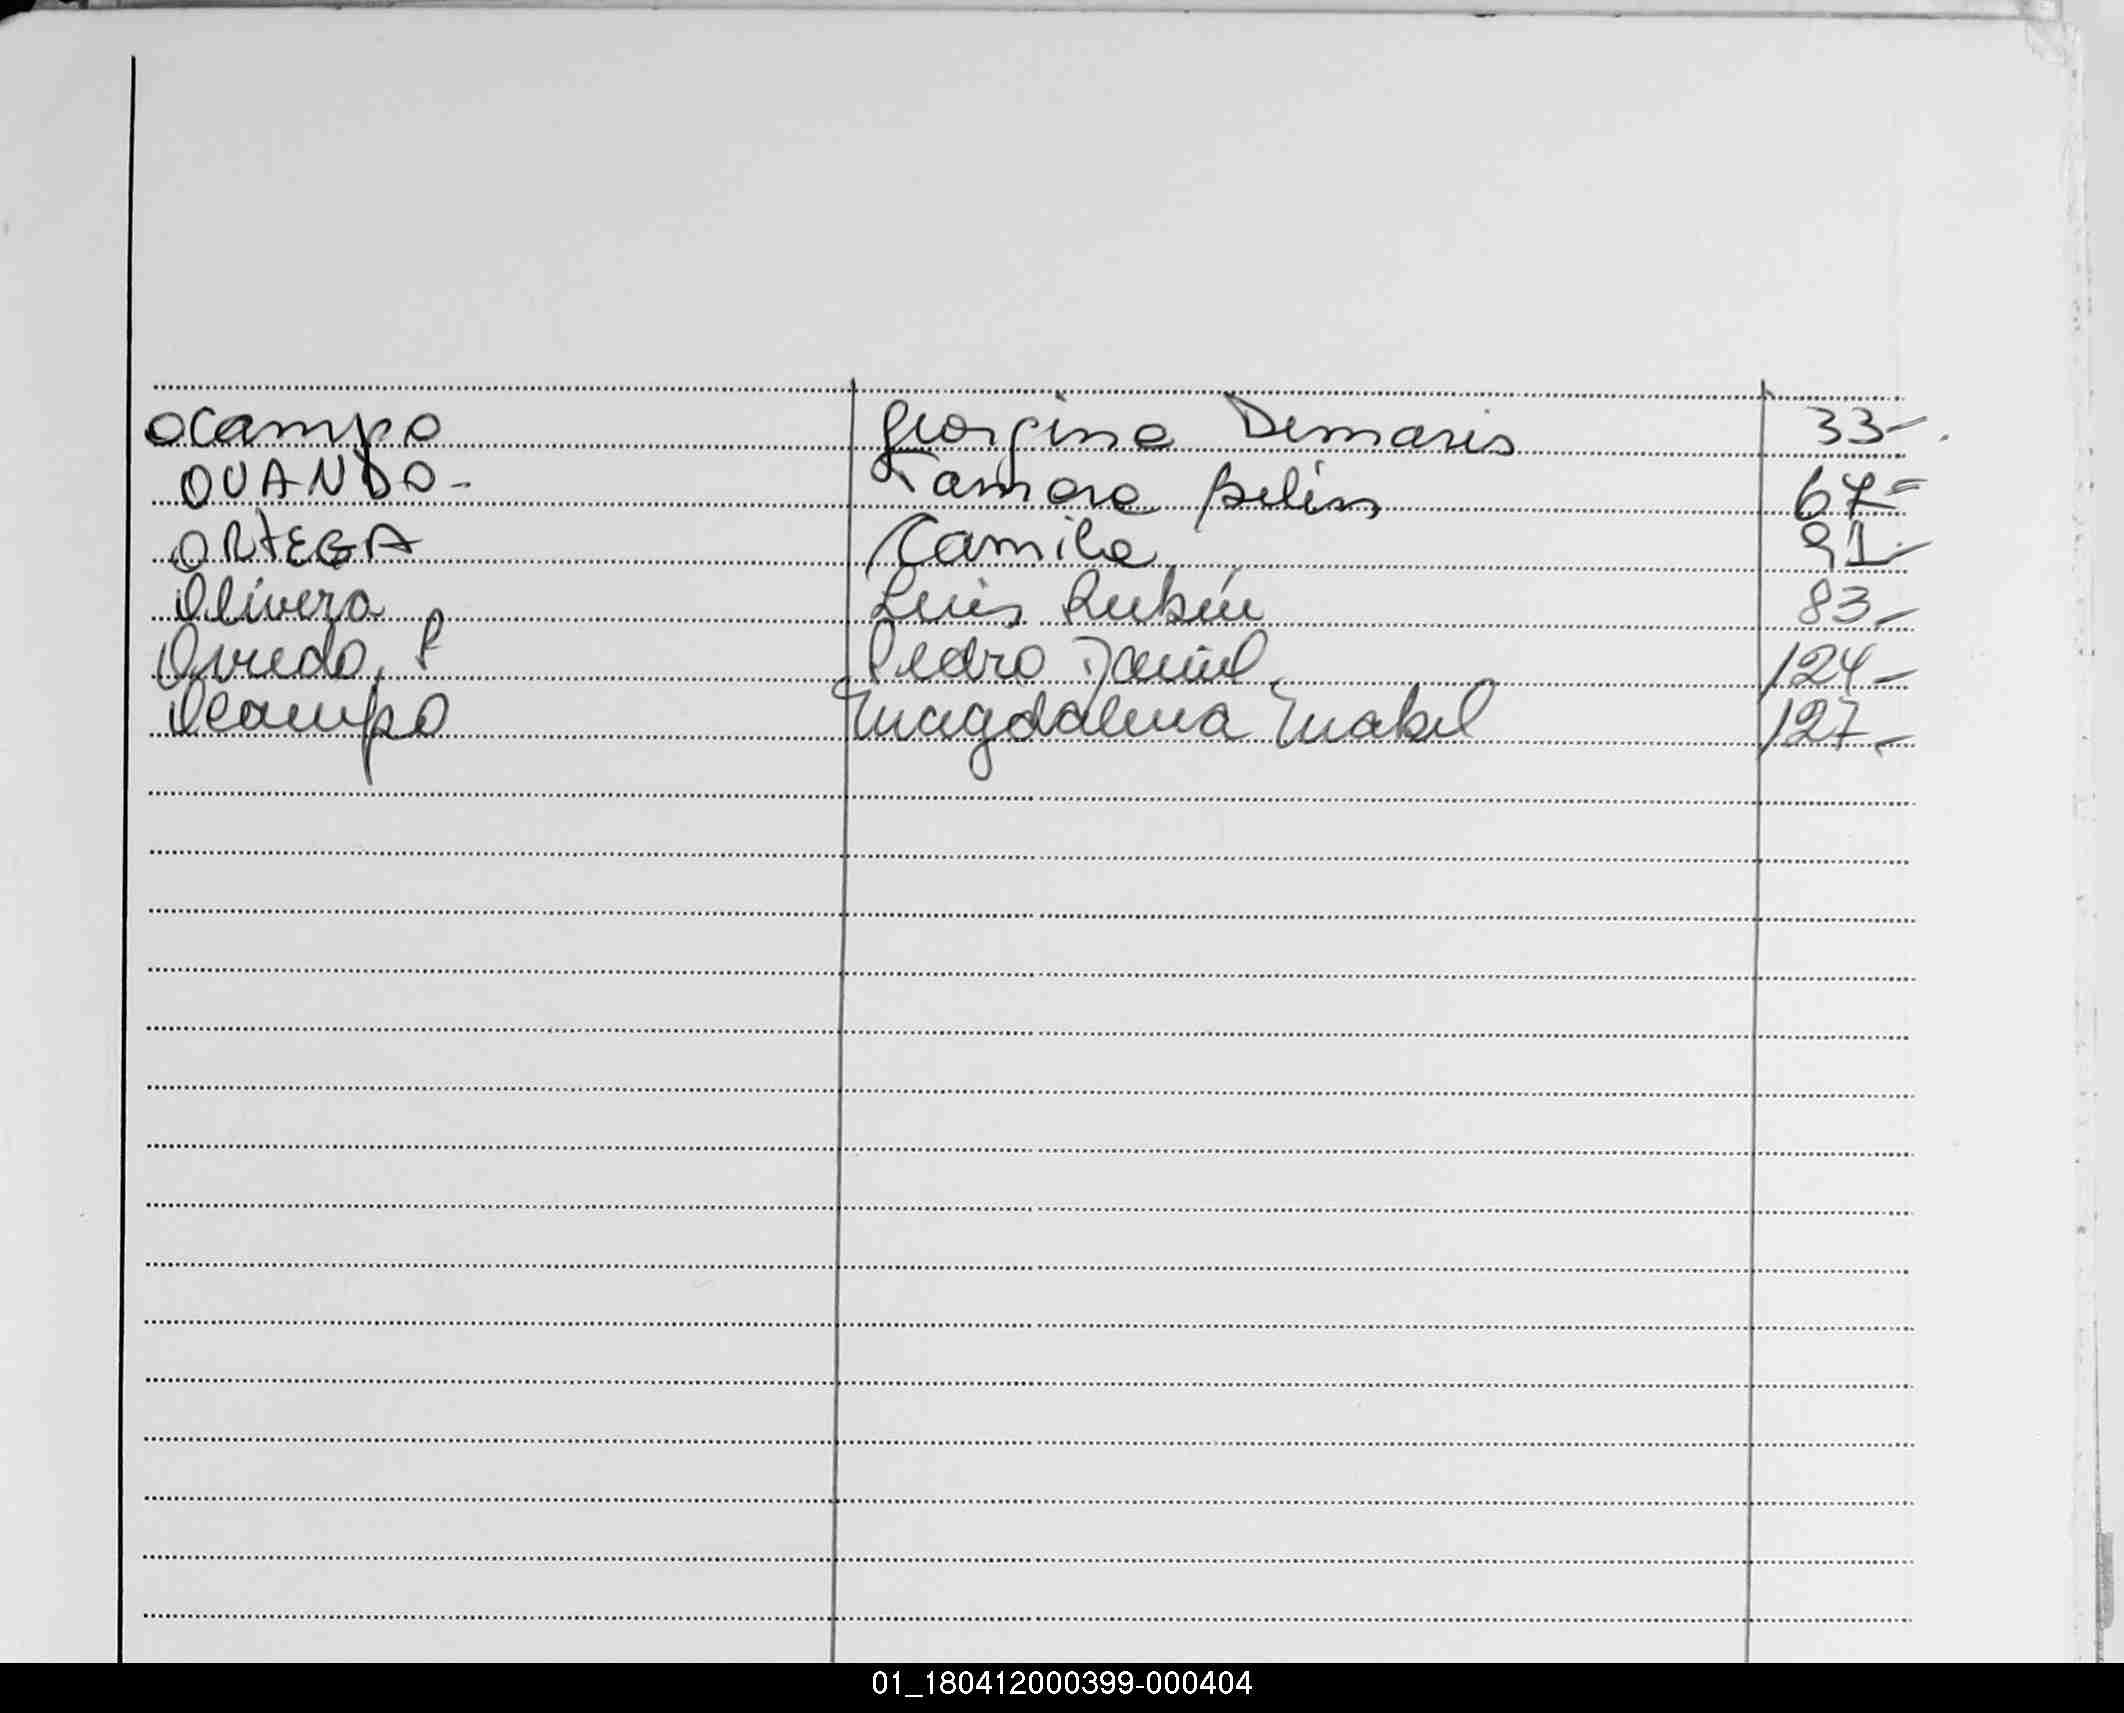 Ocampo Georgina Demaris 33-.
OVANDO- Tamara Belén 67=
ORTEGA Camila 91-
Olivera Luis Rubén 83-
Oviedo, P Pedro Daniel 124-
Ocampo Magdalena Mabel 127-
01_180412000399-000404